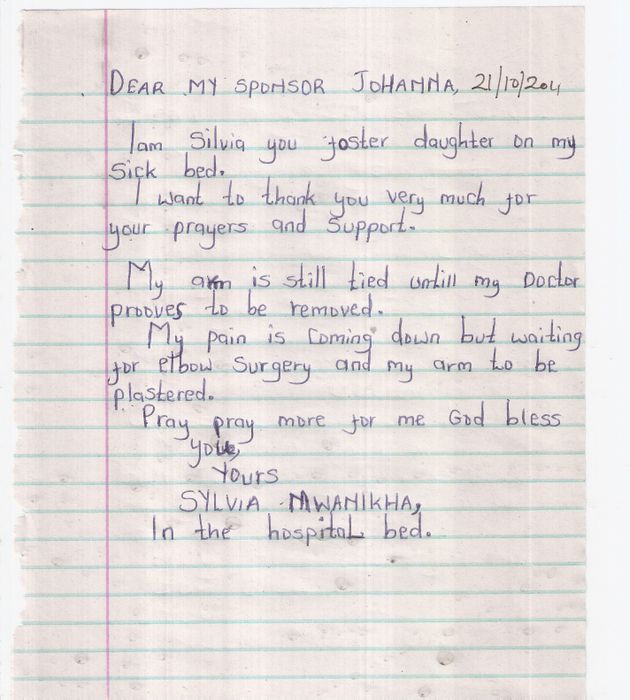 DEAR MY SPONSOR JOHANNA, 21/10/2011
Iam Silvia you foster daughter on my
Sick bed.
I want to thank you very much for
your prayers and Support.
My arm is still tied untill my Doctor
prooves to be removed.
My pain is Coming down but waiting
for elbow Surgery and my arm to be
plastered.
Pray pray more for me God bless
you,
Yours
SYLVIA MWANIKHA,
In the hospital bed.